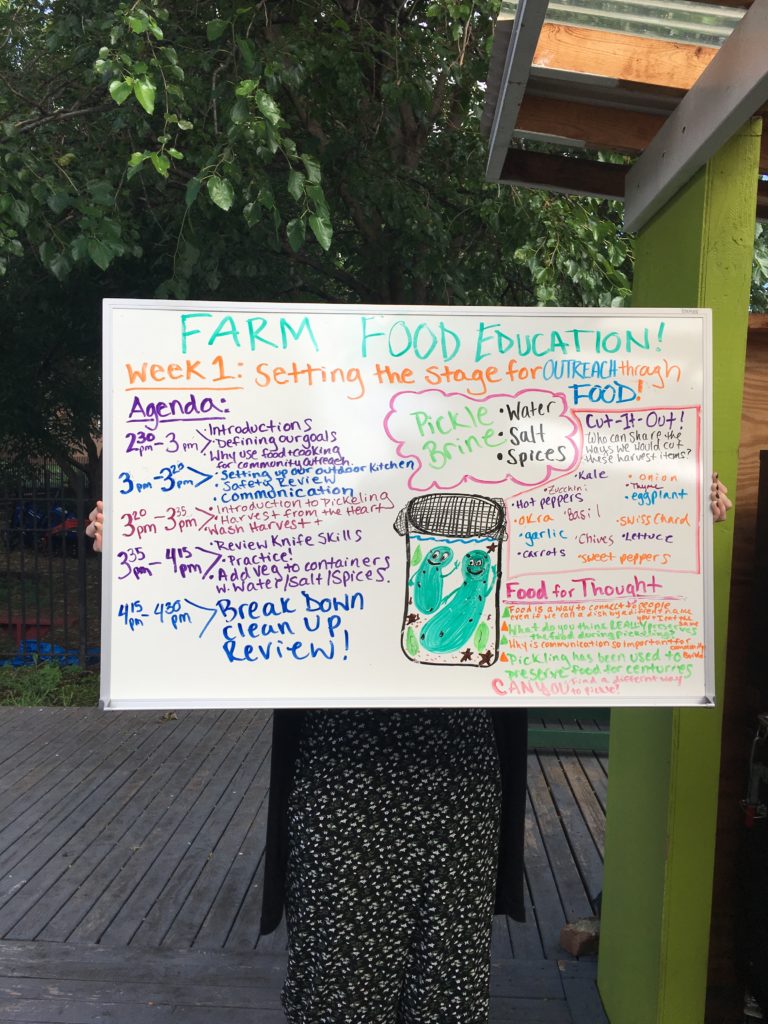 FARM FOOD EDUCATION!
Week 1: Setting the Stage for OUTREACH through
FOOD!
Agenda:
2:30 pm - 3 pm
• Introductions
• Defining our goals
Why use food + cooking
for community outreach.
3 pm - 3:20 pm
• Setting up our outdoor Kitchen
• Safety Review
• Communication
3:20 pm - 3:35 pm
• Introduction to Pickeling
• Harvest from the Heart
• Wash Harvest +
3:35 pm - 4:15 pm
• Review Knife Skills
• Practice!
• Add veg to containers
w. Water/Salt/Spices.
4:15 pm - 4:30 pm
Break Down
Clean UP
Review!
Pickle
Brine
• Water
• Salt
• Spices
Cut-It-Out!
Who can share the
ways we would cut
these harvest items?
• Kale
• onion
• Zucchini
• Thyme
• Hot peppers
• eggplant
• okra
• Basil
• swiss chard
• garlic
• Chives
• Lettuce
• carrots
• sweet peppers
Food for Thought
Food is a way to connect to people
even if we call a dish by a different name
What do you think REALLY preserves
the food during pickeling?
Why is communication so important for
Pickling has been used to
preserve food for centuries
CAN YOU find a different way
to pickle!